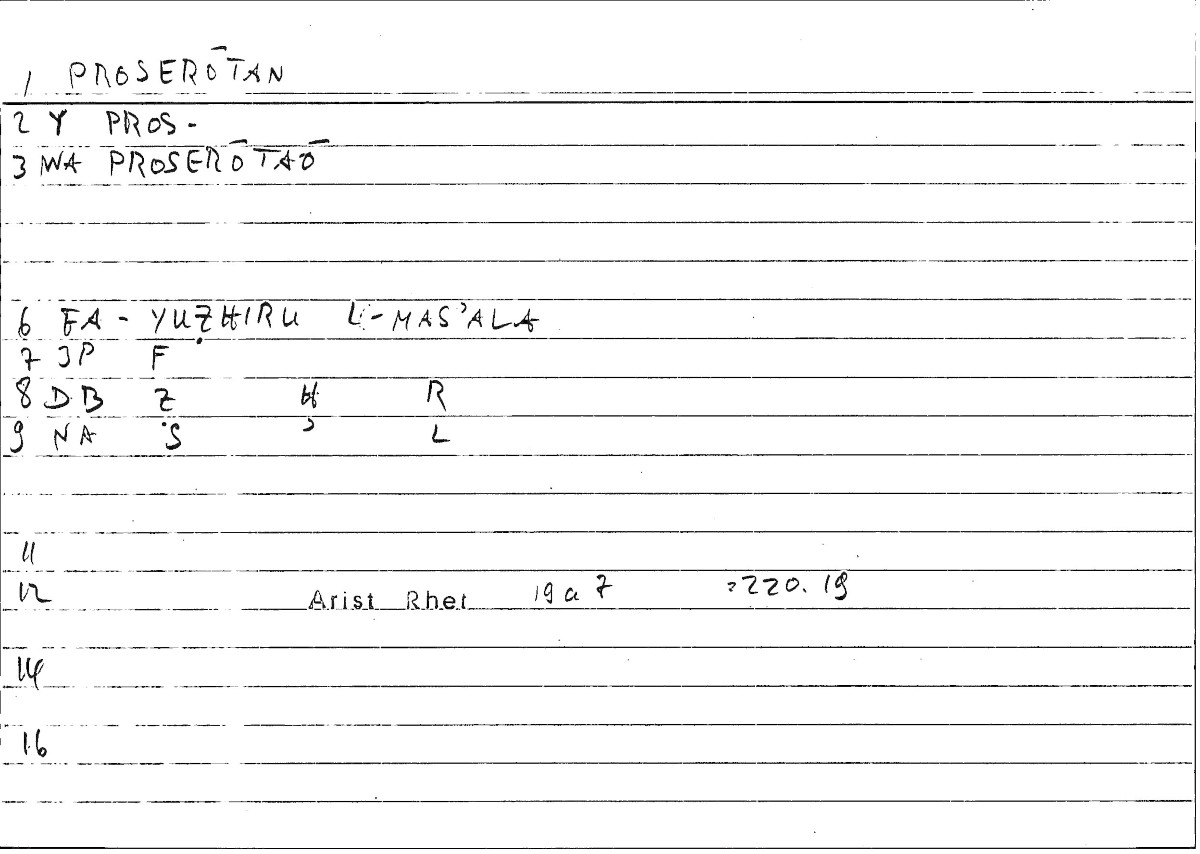 1 PROSERŌTAN
2 Y PROS-
3 WA PROSERŌTAŌ
6 FA - YUẒHIRU L-MAS'ALA
7 JP F
8 DB Ẓ H R
9 NA S ' L
11
12 Arist Rhet 19a7 =220.19
14
16